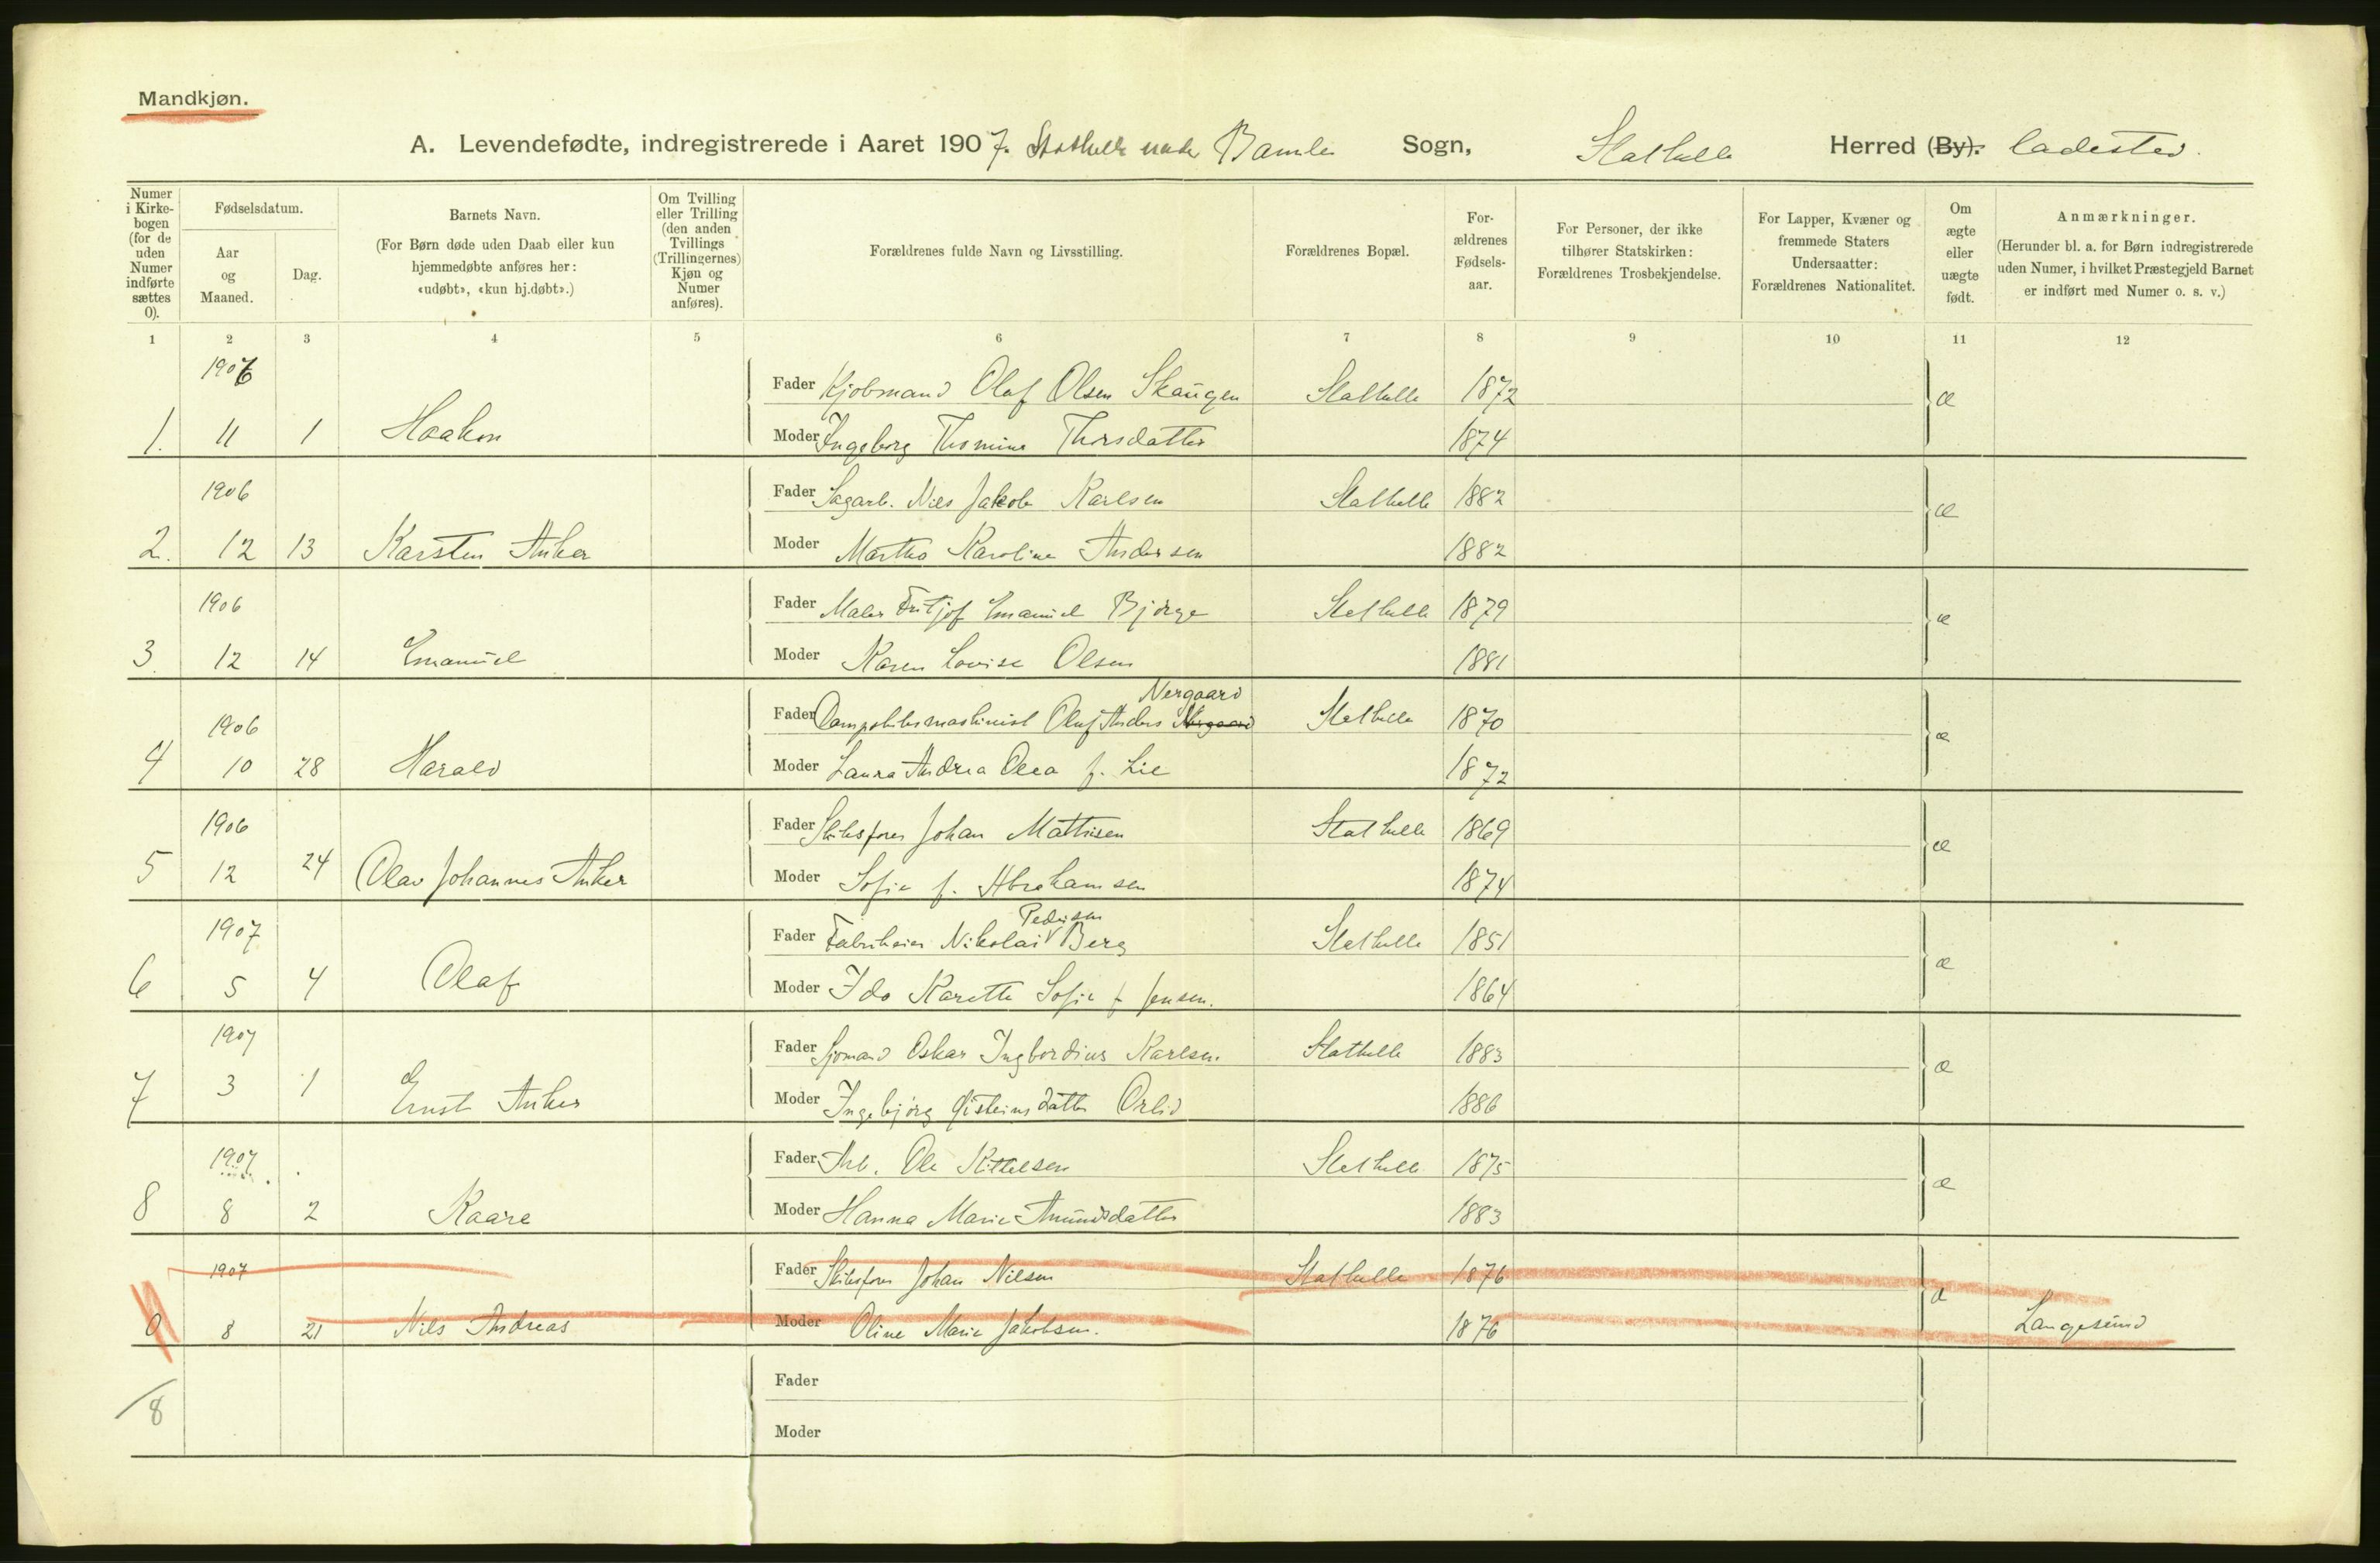 Mandkjøn.
A. Levendefødte, indregistrerede i Aaret 1907. Stathelle under Bamle Sogn, Stathelle Herred (By). ladested.
Numer i Kirkebogen (for de uden Numer indførte sættes 0).
Fødselsdatum.
Aar og Maaned.
Dag.
Barnets Navn.
(For Børn døde uden Daab eller kun hjemmedøbte anføres her: «udøbt», «kun hj.døbt».)
Om Tvilling eller Trilling (den anden Tvillings (Trillingernes) Kjøn og Numer anføres).
Forældrenes fulde Navn og Livsstilling.
Forældrenes Bopæl.
Forældrenes Fødselsaar.
For Personer, der ikke tilhører Statskirken: Forældrenes Trosbekjendelse.
For Lapper, Kvæner og fremmede Staters Undersaatter: Forældrenes Nationalitet.
Om ægte eller uægte født.
Anmærkninger.
(Herunder bl. a. for Børn indregistrerede uden Numer, i hvilket Præstegjeld Barnet er indført med Numer o. s. v.)
1 2 3 4 5 6 7 8 9 10 11 12
1906 Fader Kjøbmand Olaf Olsen Skaugen Stathelle 1872 æ
1. 11 1 Haakon Moder Ingeborg Thomine Thorsdatter 1874
1906 Fader Sagarb. Nils Jakob Karlsen Stathelle 1882 æ
2. 12 13 Karsten Anker Moder Martha Karoline Andersen 1882
1906 Fader Maler Fritjof Emanuel Bjørge Stathelle 1879 æ
3. 12 14 Emanuel Moder Karen Lovise Olsen 1881
Nergaard
1906 Fader Dampskibsmaskinist Oluf Anders Stathelle 1870 æ
4 10 28 Harald Moder Laura Andrea Olea f. Lie 1872
1906 Fader Skibsfører Johan Mathisen Stathelle 1869 æ
5 12 24 Olav Johannes Anker Moder Sofie f. Abrahamsen 1874
Pedersen
1907 Fader Fabrikeier Nikolai Berg Stathelle 1851 æ
6 5 4 Olaf Moder Ida Karette Sofie f Jensen. 1864
1907 Fader Sjømand Oskar Ingbordius Karlsen. Stathelle 1883 æ
7 3 1 Ernst Anker Moder Ingebjørg Østeinsdatter Orlid 1886
1907 Fader Arb. Ole Kittelsen Stathelle 1875 æ
8 8 2 Kaare Moder Hanna Marie Amundsdatter 1883
1907 Fader Skibsfører Johan Nilsen Stathelle 1876 æ
0 8 21 Nils Andreas Moder Oline Marie Jakobsen. 1876 Langesund
Fader
/8
Moder